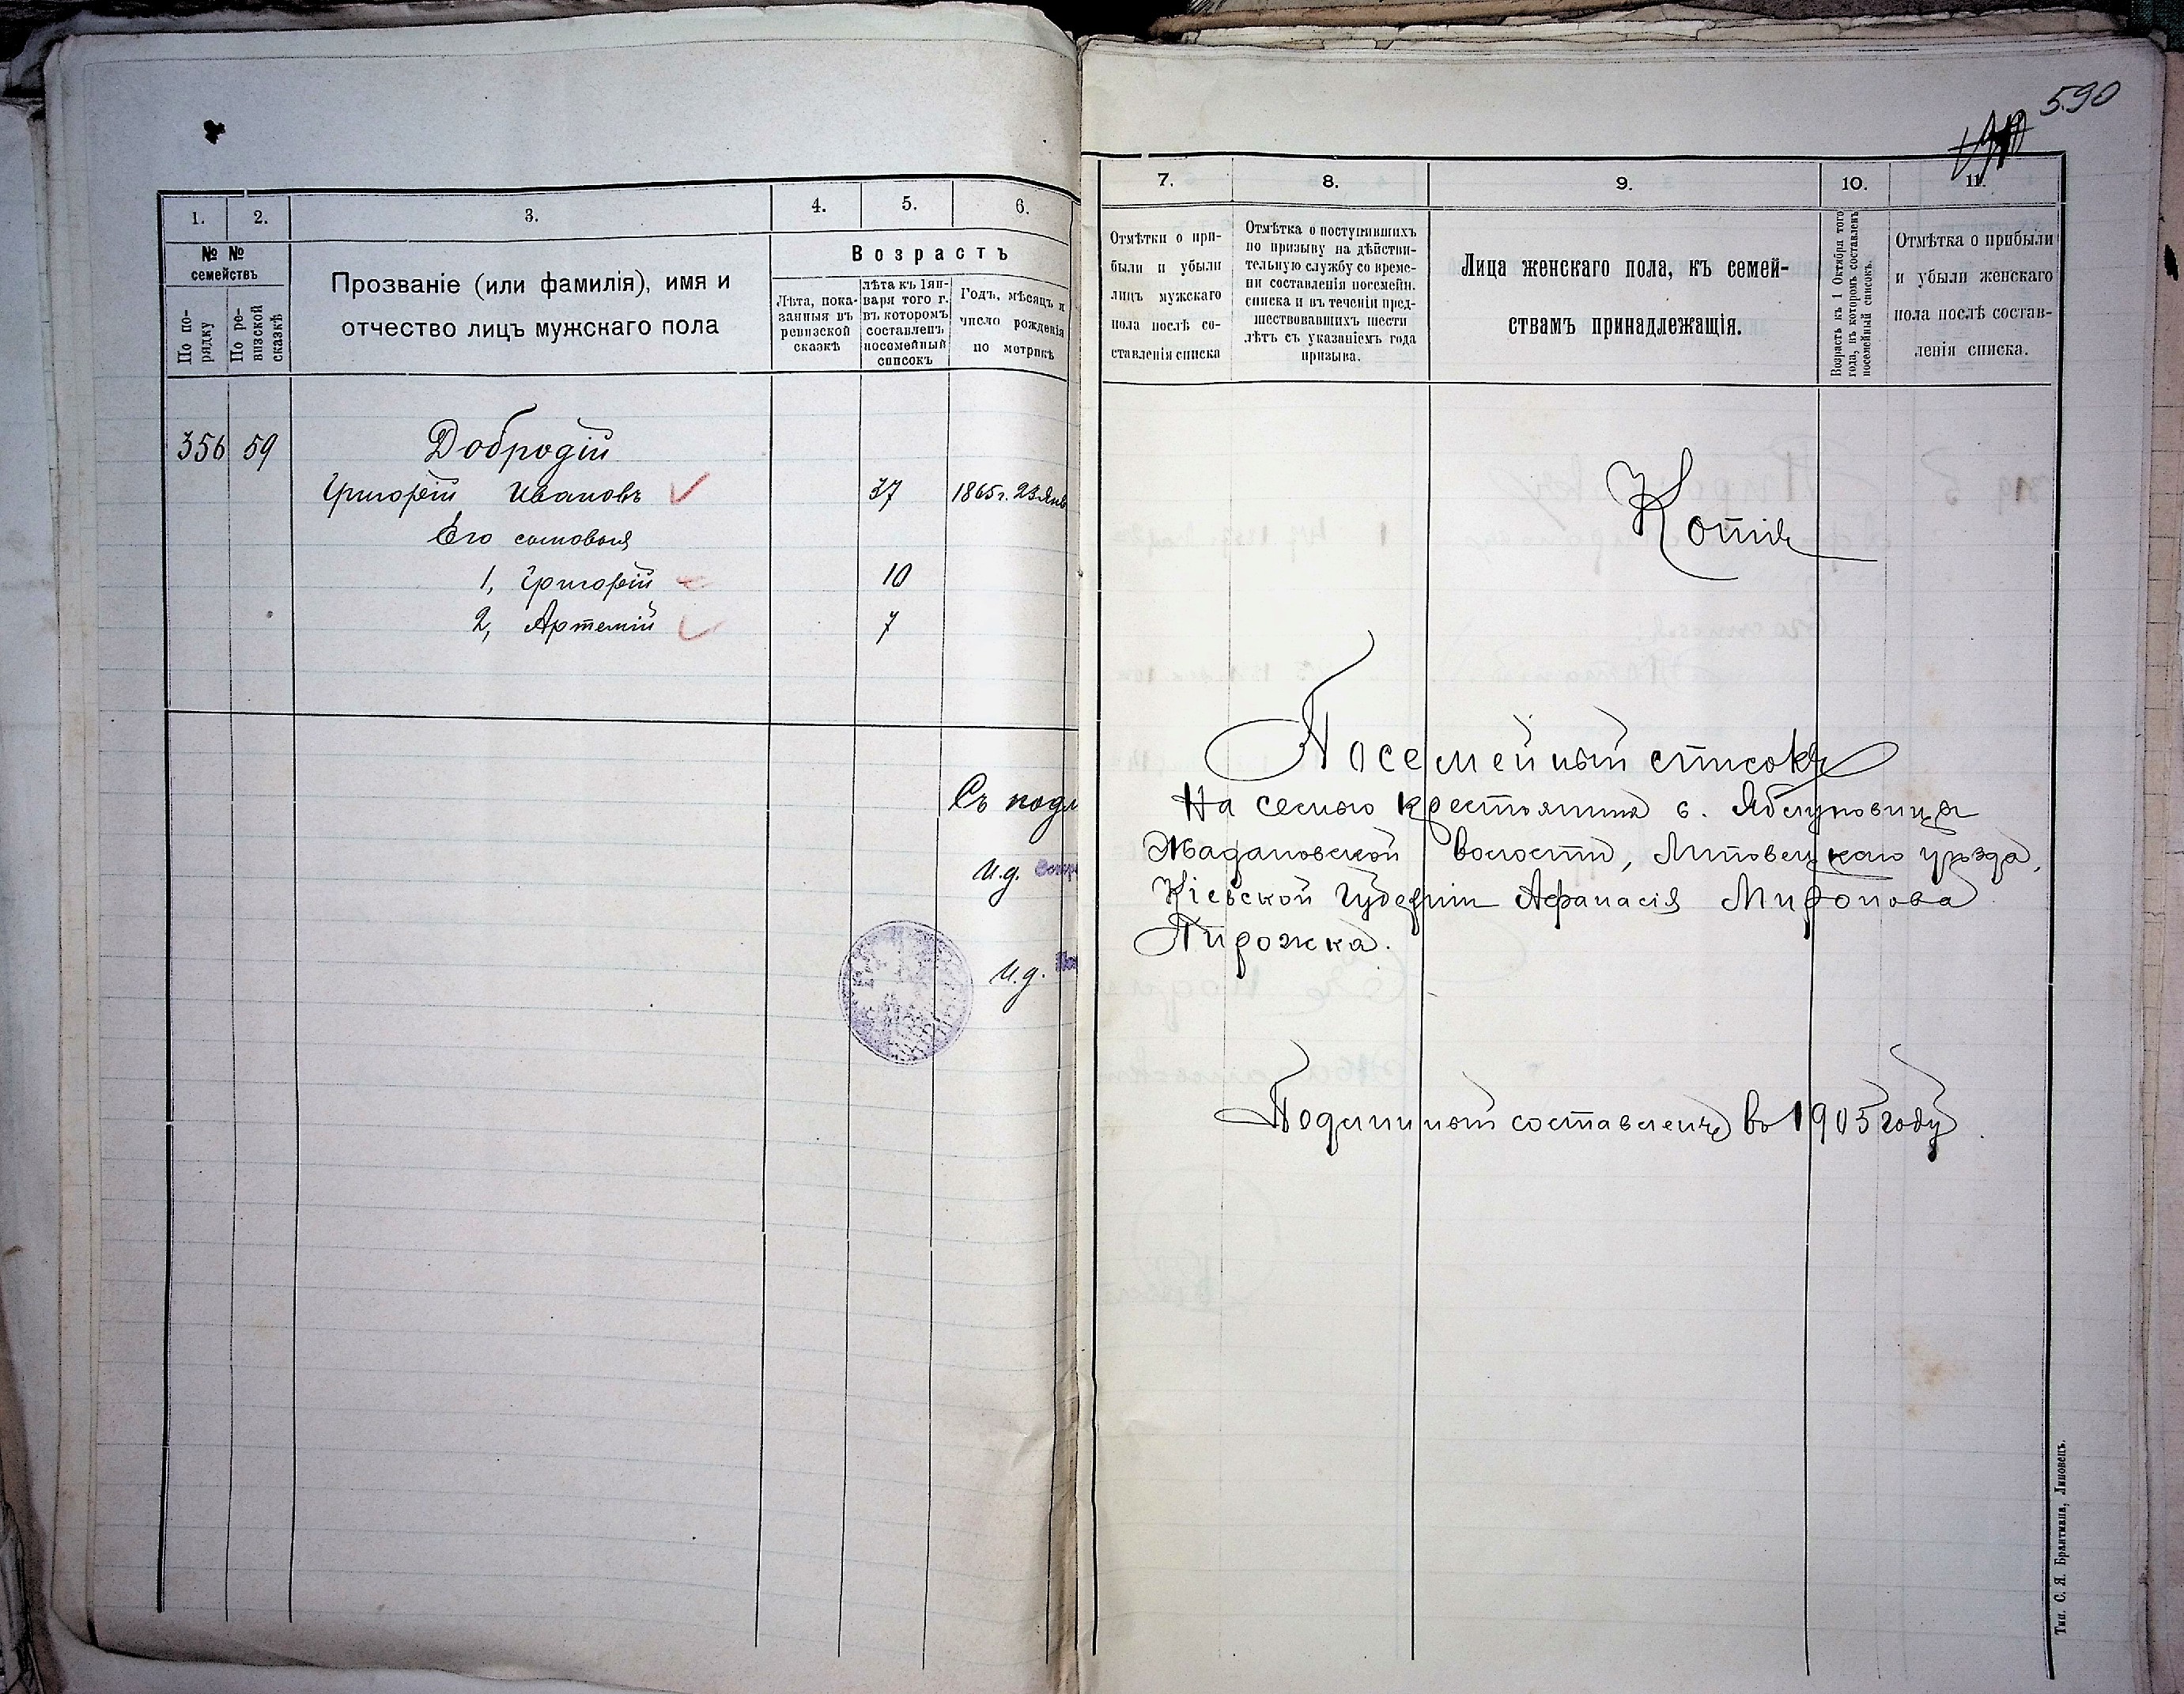 1.
2.
3.
4.
5.
6.
№ №
семействъ
По по-
рядку
По ре-
визской
сказкѣ
Прозваніе (или фамилія), имя и
отчество лицъ мужскаго пола
Возрастъ
Лѣта, пока-
занныя въ
ревизской
сказкѣ
лѣта къ 1 ян-
варя того г.
въ которомъ
составленъ
посемейный
списокъ
Годъ, мѣсяцъ и
число рожденія
по метрикѣ
356 59 Добродій
Григорій Ивановъ 37 1865 г. 23 Янв
Его сыновья
1, Григорій 10
2, Артемій 7
Съ подл
И.д.
И.д.
590
7.
8.
9.
10.
11.
Отмѣтки о при-
были и убыли
лицъ мужскаго
пола послѣ со-
ставленія списка
Отмѣтка о поступившихъ
по призыву на дѣйстви-
тельную службу со време-
ни составленія посемейн.
списка и въ теченіи пред-
шествовавшихъ шести
лѣтъ съ указаніемъ года
призыва.
Лица женскаго пола, къ семей-
ствамъ принадлежащія.
Возрастъ къ 1 Октября того
года, въ которомъ составленъ
посемейный списокъ.
Отмѣтка о прибыли
и убыли женскаго
пола послѣ состав-
ленія списка.
Копія
Посемейный списокъ
На семью крестьянина с. Яблуновицы
Жадановской волости, Липовецкаго уѣзда,
Кіевской Губерніи Афанасія Миронова
Пирожка.
Подлинный составленъ въ 1905 году.
Тип. С. Я. Брантмана, Липовецъ.